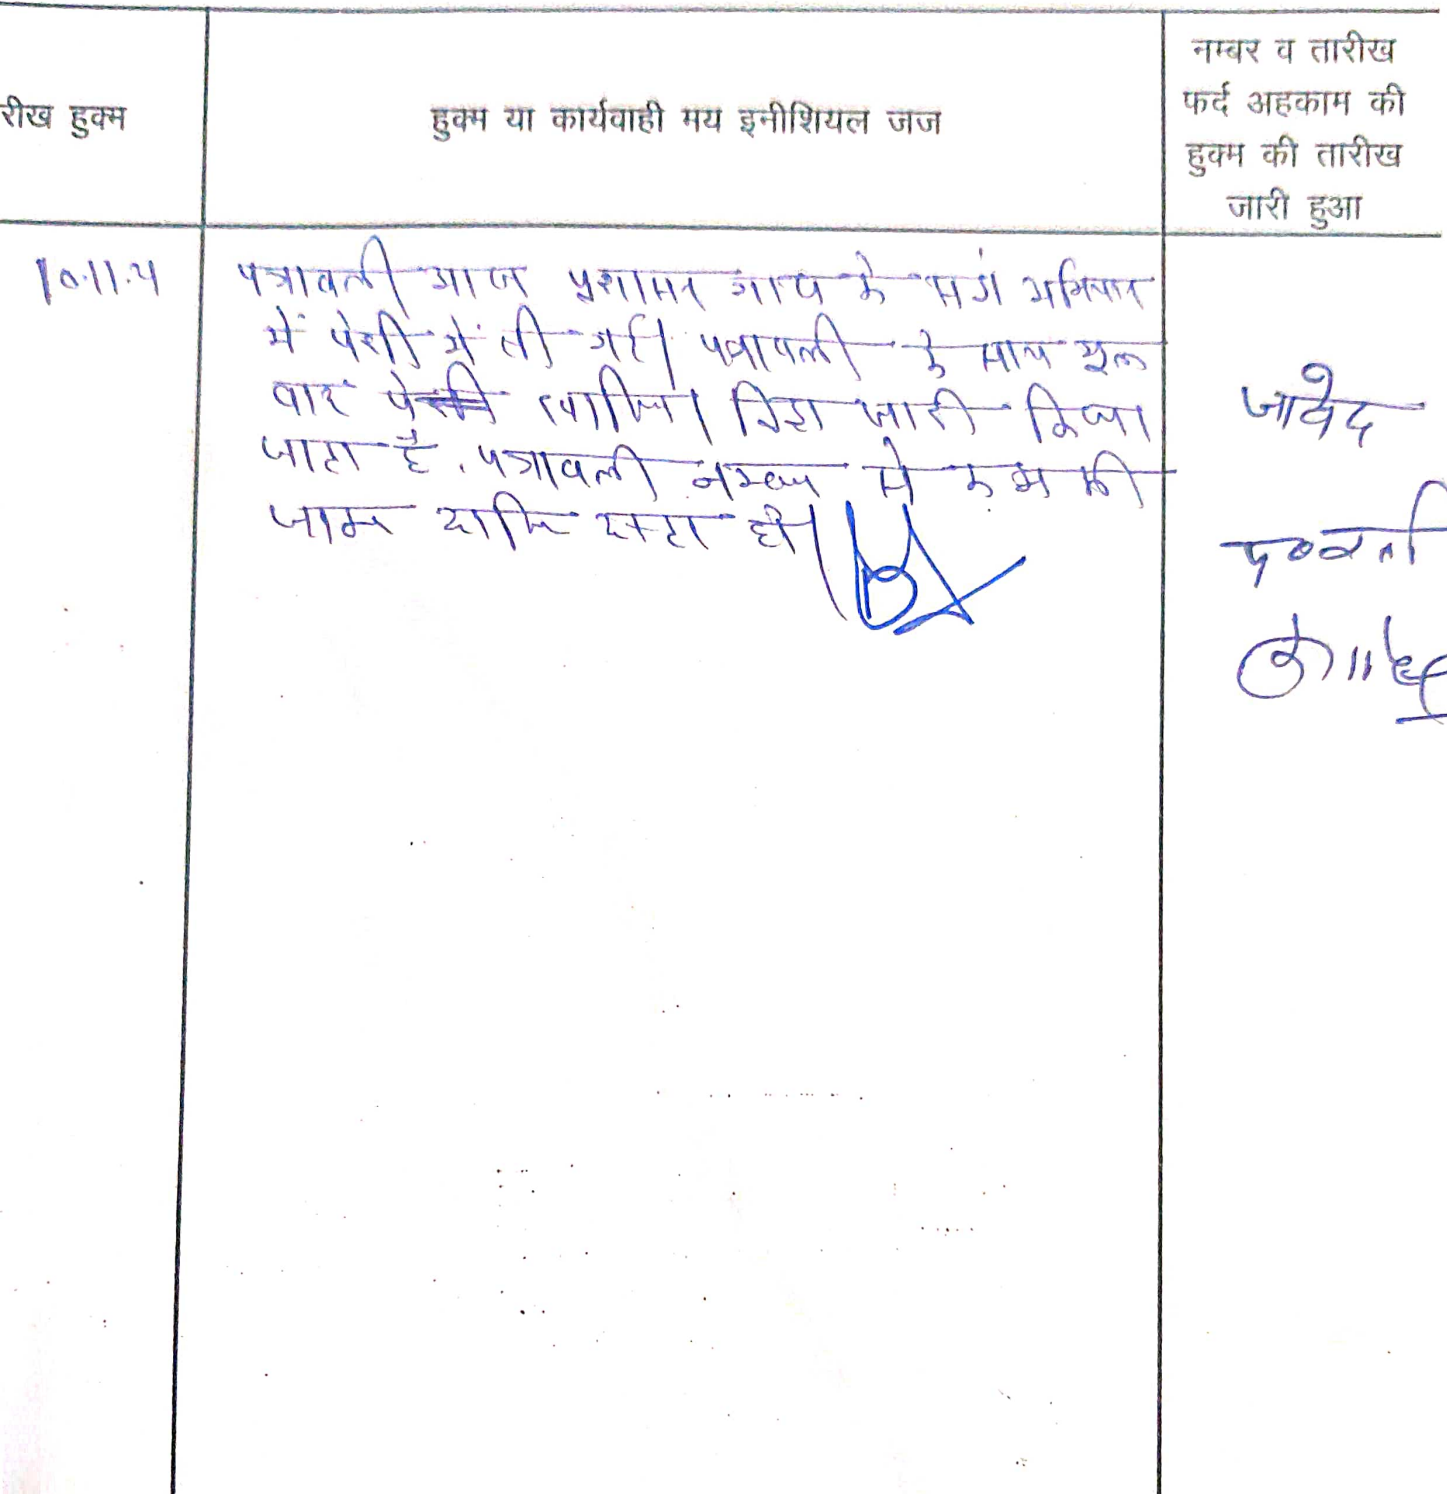 रीख हुक्म
हुक्म या कार्यवाही मय इनीशियल जज
नम्बर व तारीख
फर्द अहकाम की
हुक्म की तारीख
जारी हुआ
पत्रावली आज प्रशासन गांव के संग अभियान
में पेशी में ली गई। पत्रावली के साथ मूल
वाद खारिज। जारी किया
जाता है. पत्रावली नम्बर से कम की
जाकर दाखिल दफ्तर हो।
जावेद